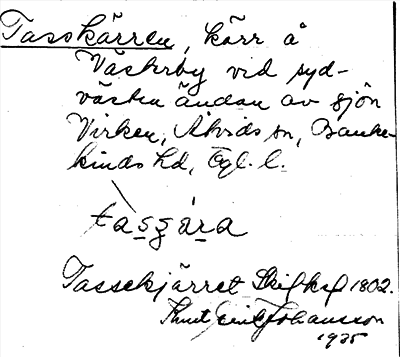 Tasskärren, kärr å
Västerby vid syd-
västra ändan av sjön
Virken, Åtvids sn, Banke-
kinds hd, Ögl. l.
tasgára
Tassekjärret Skifksf 1802.
Knut Erik Johansson
1935